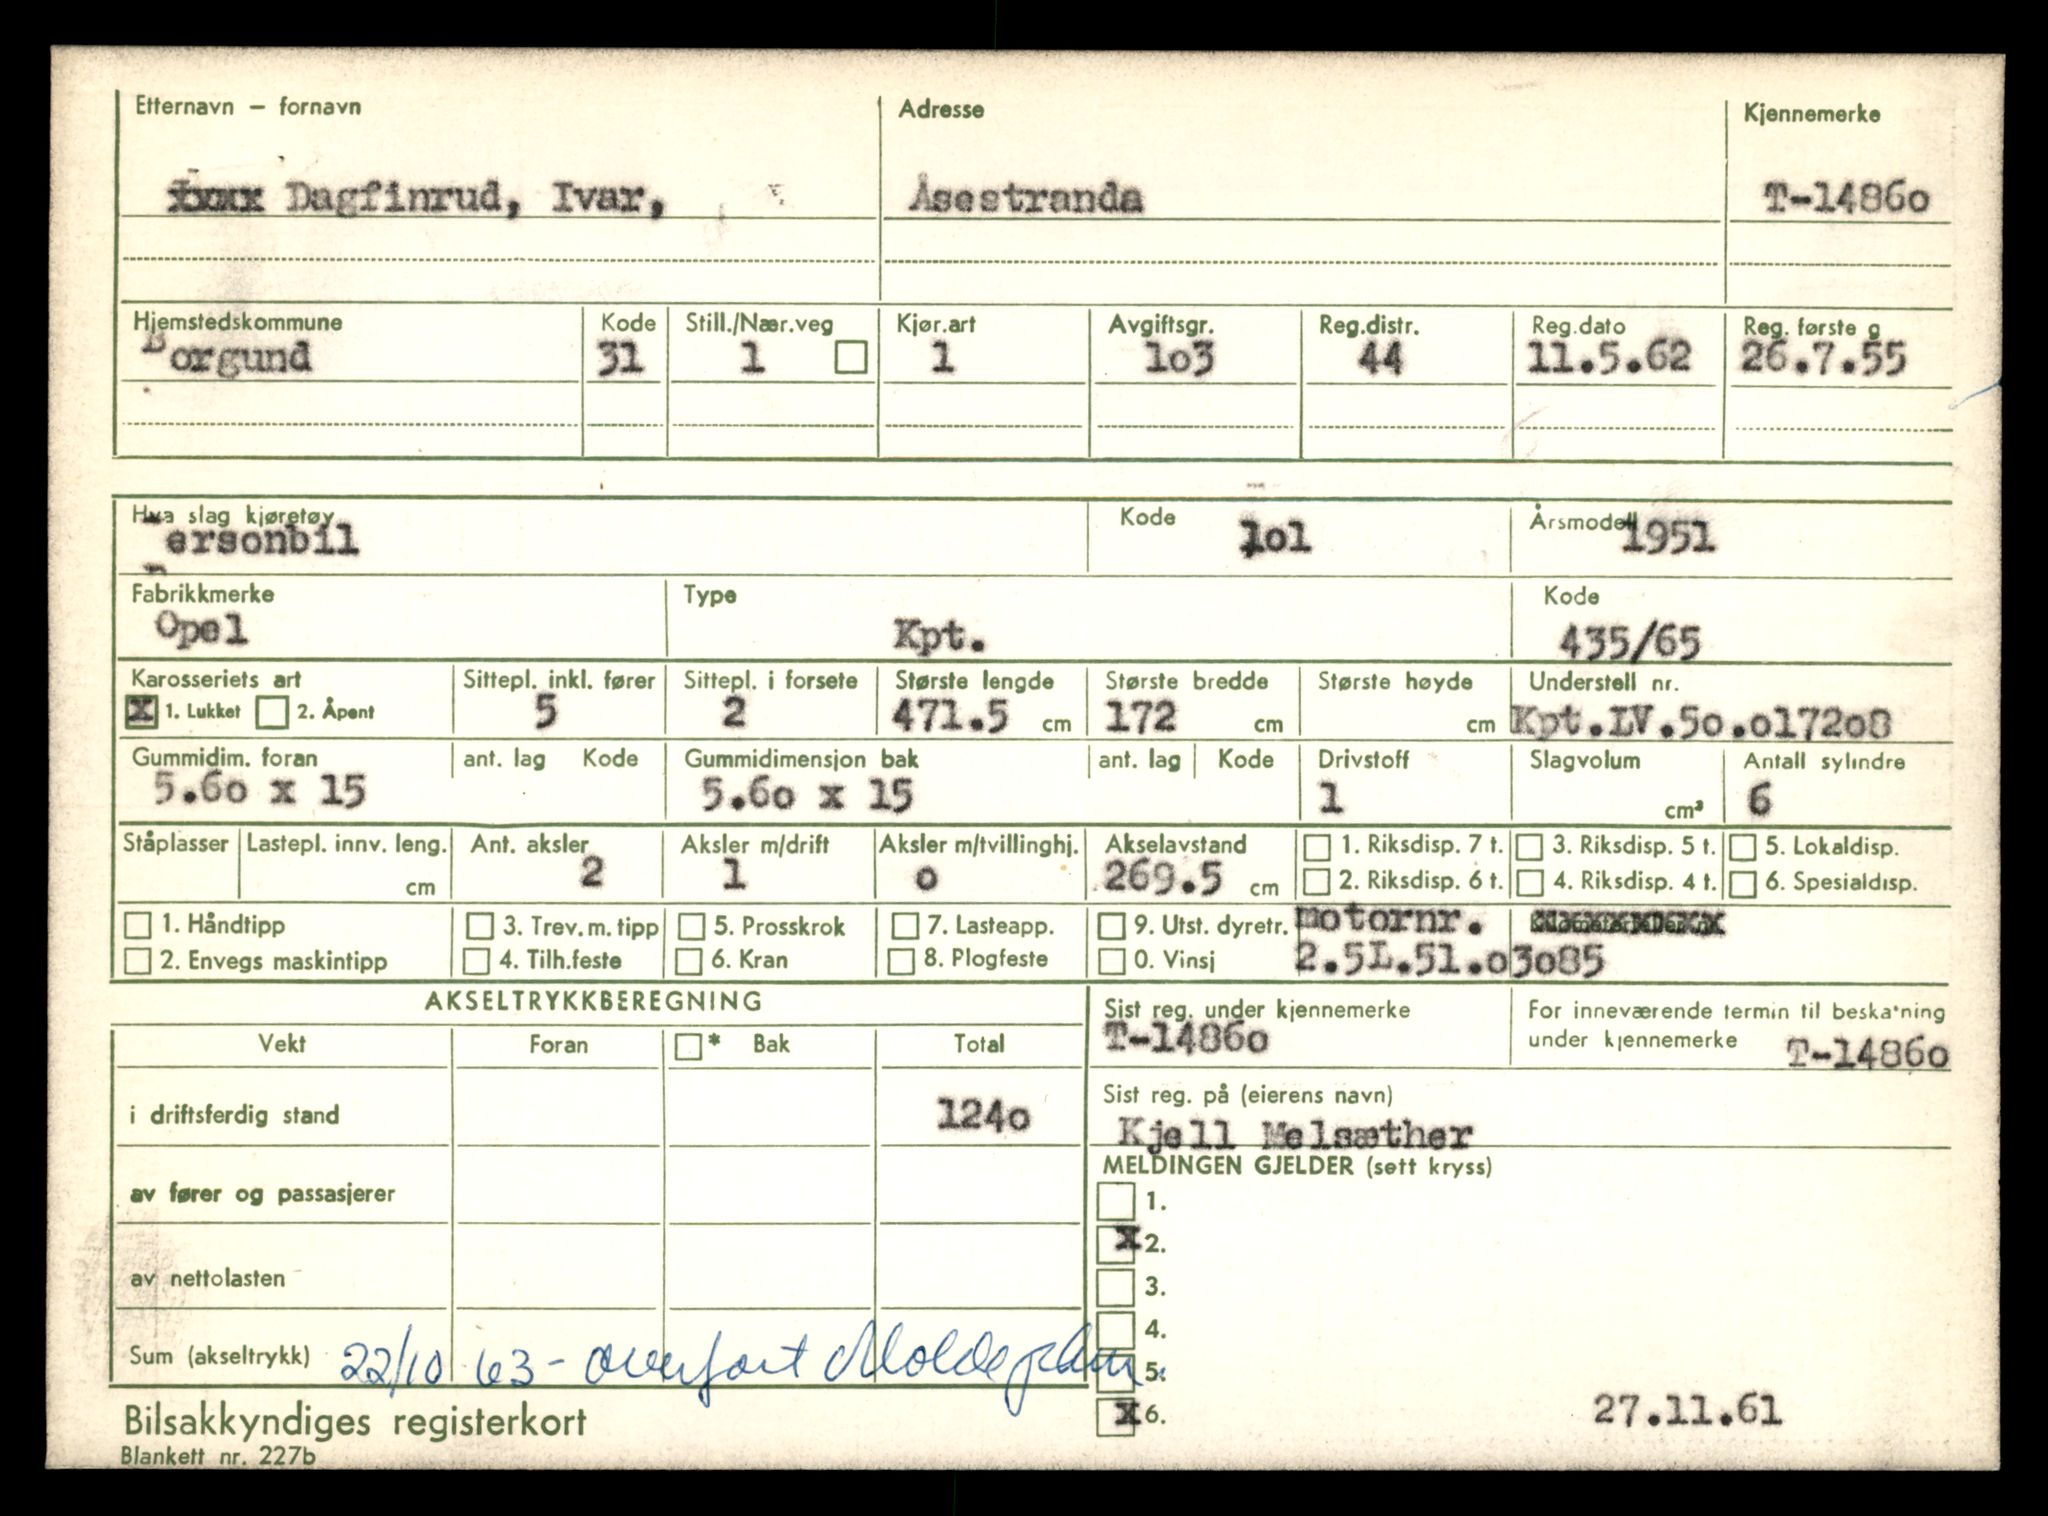 Etternavn — fornavn Adresse Kjennemerke
Dagfinrud, Ivar, Åsestranda T-14860
Hjemstedskommune Kode Still./Nær.veg Kjør.art Avgiftsgr. Reg.distr. Reg.dato Reg. første g
Borgund 31 1 1 1o3 44 11.5.62 26.7.55
Hva slag kjøretøy Kode Årsmodell
Personbil 1o1 1951
Fabrikkmerke Type Kode
Opel Kpt. 435/65
Karosseriets art Sittepl. inkl. fører Sittepl. i forsete Største lengde Største bredde Største høyde Understell nr.
x 1. Lukket 2. Åpent 5 2 471.5 cm 172 cm cm Kpt.LV.5o.o172o8
Gummidim. foran ant. lag Kode Gummidimensjon bak ant. lag Kode Drivstoff Slagvolum Antall sylindre
5.6o x 15 5.6o x 15 1 cm³ 6
Ståplasser Lastepl. innv. leng. Ant. aksler Aksler m/drift Aksler m/tvillinghj. Akselavstand 1. Riksdisp. 7 t. 3. Riksdisp. 5 t. 5. Lokaldisp.
cm 2 1 o 269.5 cm 2. Riksdisp. 6 t. 4. Riksdisp. 4 t. 6. Spesialdisp.
1. Håndtipp 3. Trev. m. tipp 5. Prosskrok 7. Lasteapp. 9. Utst. dyretr. motornr.
2. Envegs maskintipp 4. Tilh.feste 6. Kran 8. Plogfeste 0. Vinsj 2.5L.51.o3o85
AKSELTRYKKBEREGNING Sist reg. under kjennemerke For inneværende termin til beskatning
Vekt Foran * Bak Total T-1486o under kjennemerke T-1486o
i driftsferdig stand 124o Sist reg. på (eierens navn)
Kjell Melsæther
MELDINGEN GJELDER (sett kryss)
av fører og passasjerer 1.
x 2.
av nettolasten 3.
4.
Sum (akseltrykk) 22/10 63 - overført Molde 5.
x 6. 27.11.61
Bilsakkyndiges registerkort
Blankett nr. 227b